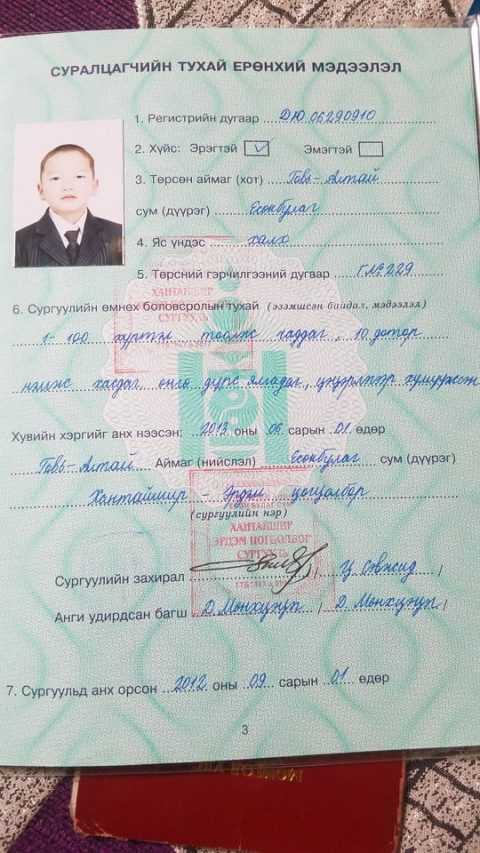 СУРАЛЦАГЧИЙН ТУХАЙ ЕРӨНХИЙ МЭДЭЭЛЭЛ
1. Регистрийн дугаар ДЮ 06290910
2. Хүйс: Эрэгтэй ☑ Эмэгтэй ☐
3. Төрсөн аймаг (хот) Говь-Алтай
сум (дүүрэг) Есөнбулаг
4. Яс үндэс халх
5. Төрсний гэрчилгээний дугаар Г№229
6. Сургуулийн өмнөх боловсролын тухай (эзэмшсэн байдал, мэдээлэл)
1-100 хүртэл тоолж чаддаг, 10 дотор
нэмж хасдаг, өнгө дүрс ялгадаг, цэцэрлэгээр хүмүүжсэн
Хувийн хэргийг анх нээсэн: 2013 оны 06 сарын 01 өдөр
Говь-Алтай Аймаг (нийслэл) Есөнбулаг сум (дүүрэг)
Хантайшир - Эрдэм цогцолбор
(сургуулийн нэр)
ХАНТАЙШИР
СУРГУУЛЬ
ХАНТАЙШИР
ЭРДЭМ ЦОГЦОЛБОР
СУРГУУЛЬ
Сургуулийн захирал / Ц.
Анги удирдсан багш Д. Мөнхцэцэг / Д. Мөнхцэцэг /
7. Сургуульд анх орсон 2012 оны 09 сарын 01 өдөр
3